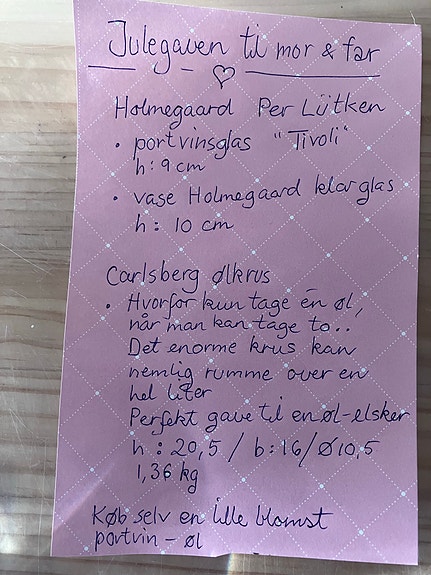 Julegaven til mor & far
Holmegaard Per Lütken
• portvinsglas "Tivoli"
h: 9 cm
• vase Holmegaard klar glas
h: 10 cm
Carlsberg ølkrus
• Hvorfor kun tage én øl,
når man kan tage to..
Det enorme krus kan
nemlig rumme over en
hel liter
Perfekt gave til en øl-elsker
h: 20,5 / b: 16 / Ø 10,5
1,36 kg
Køb selv en lille blomst
portvin - øl